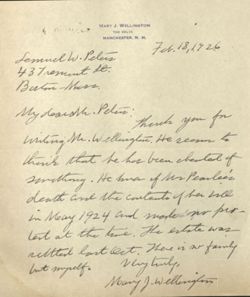 MARY J. WELLINGTON
MANCHESTER, N. H.
Feb. 13, 1926
Lemuel W. Peters
43 Tremont St.
Boston Mass.
My dear Mr. Peters:
Thank you for
writing Mr. Wellington. He seems to
think that he has been cheated of
something. He knew of Mrs Pearle's
death and the contents of her will
in May 1924 and made no pro-
test at the time. The estate was
settled last Oct. There is no family
but myself.
Very truly,
Mary J. Wellington